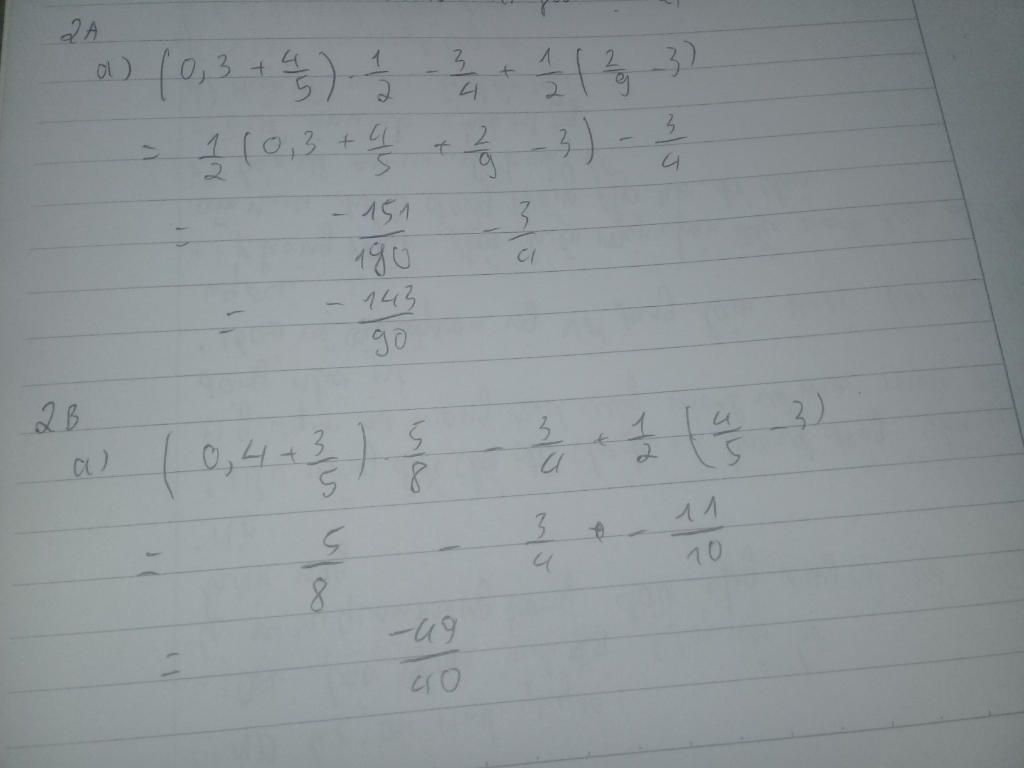 2A
a) (0,3 + 4/5) . 1/2 - 3/4 + 1/2 (2/9 - 3)
= 1/2 (0,3 + 4/5 + 2/9 - 3) - 3/4
= -151/180 - 3/4
= -143/90
2B
a) (0,4 + 3/5) . 5/8 - 3/4 + 1/2 (4/5 - 3)
= 5/8 - 3/4 - 11/10
= -49/40